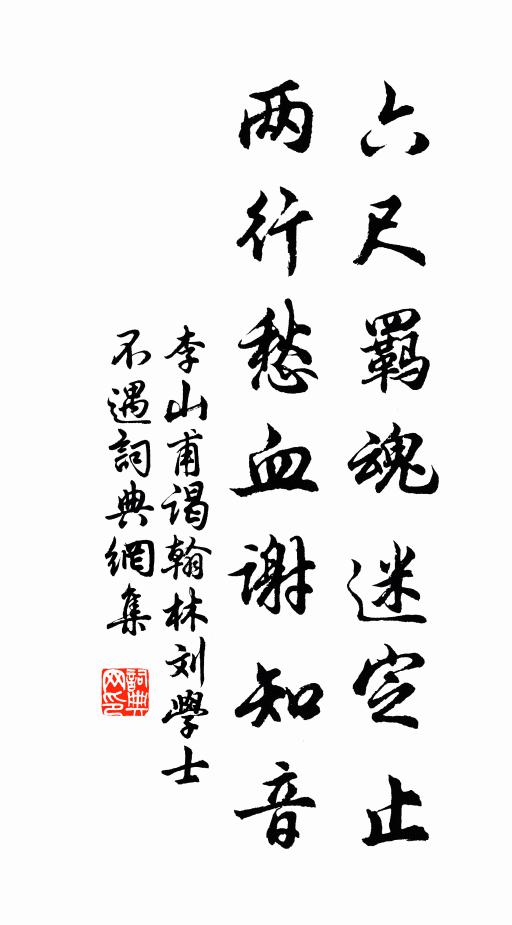 六尺羁魂迷定止
两行愁血谢知音
李山甫谒翰林刘學士
不遇詞典網集
詞典网印